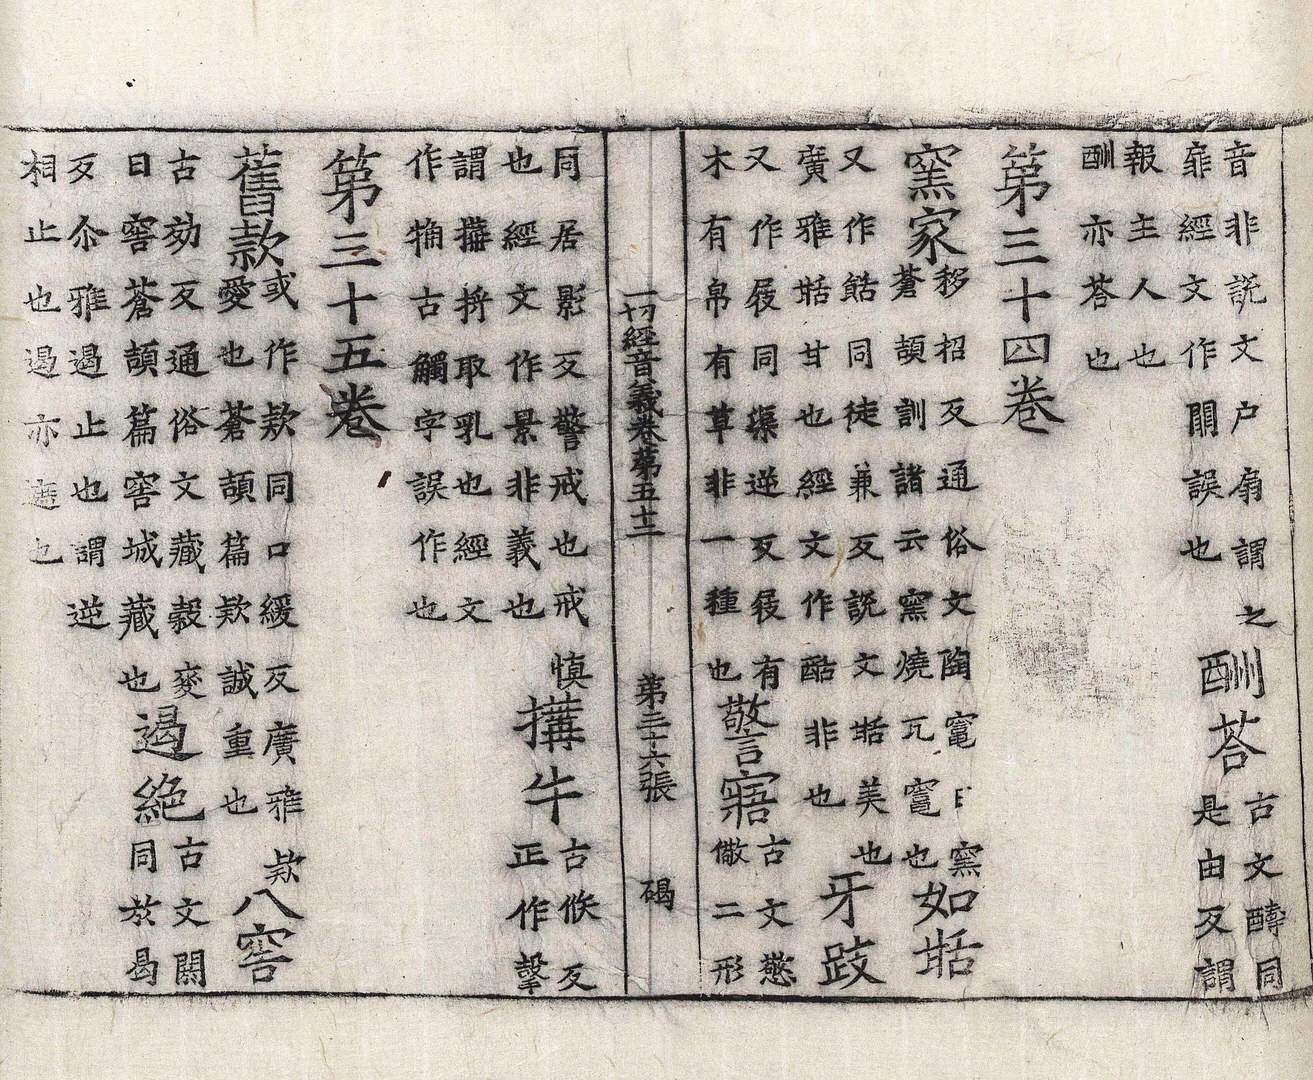 音非説文户扇謂之
扉經文作閞誤也
酬荅
古文醻同
是由反謂
報主人也
酬亦荅也
第三十四卷
窯家
移招反通俗文陶竈曰窯
蒼頡訓諸云窯燒瓦竈也
如甛
又作䬯同徒兼反説文甛美也
廣雅甛甘也經文作酤非也
牙跂
又作屐同渠逆反屐有
木有帛有草非一種也
警寤
古文憼
儆二形
一切經音義卷第五十二 第三十六張 碣
同居影反警戒也戒慎
也經文作景非義也
搆牛
古候反
正作㨌
謂搆捋取乳也經文
作觕古觸字誤作也
第三十五卷
舊款
或作欵同口緩反廣雅欵
愛也蒼頡篇欵誠重也
八窖
古効反通俗文藏穀麥
曰窖蒼頡篇窖城藏也
遏絶
古文閼
同於曷
反尒雅遏止也謂逆
相止也遏亦遮也